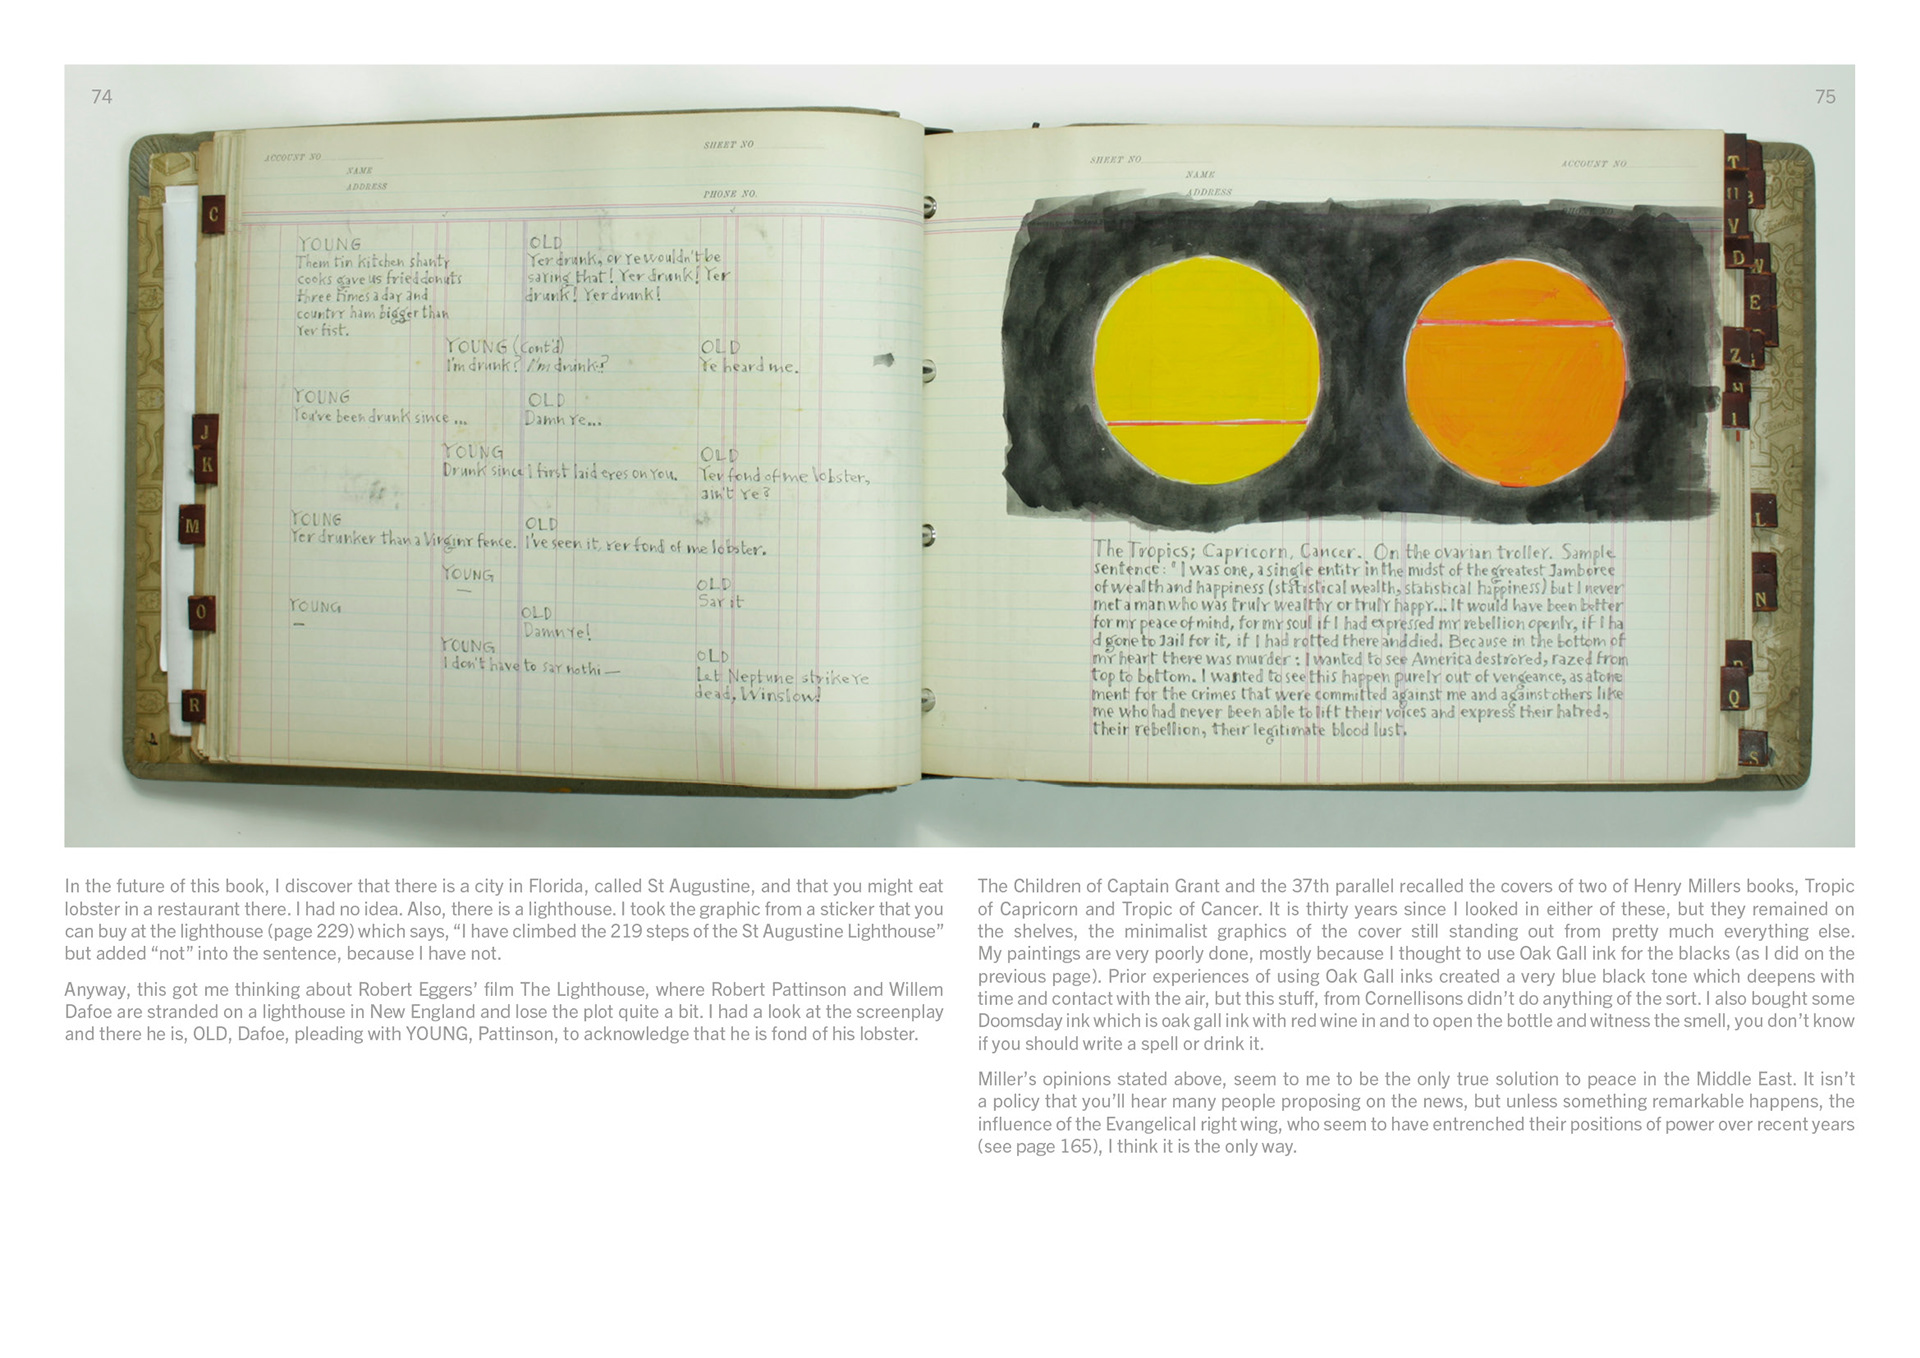 74
75
ACCOUNT NO
SHEET NO
NAME
ADDRESS
PHONE NO.
YOUNG
Them tin kitchen shanty
cooks gave us fried donuts
three times a day and
country ham bigger than
Yer fist.
OLD
Yer drunk, or ye wouldn't be
saying that! Yer drunk! Yer
drunk! Yer drunk!
YOUNG (Cont'd)
I'm drunk? I'm drunk?
OLD
Ye heard me.
YOUNG
You've been drunk since ...
OLD
Damn Ye...
YOUNG
Drunk since I first laid eyes on You.
OLD
Yer fond of me lobster,
ain't Ye?
YOUNG
Yer drunker than a Virginy fence.
OLD
I've seen it, yer fond of me lobster.
YOUNG
—
OLD
Say it
YOUNG
—
OLD
Damn ye!
YOUNG
I don't have to say nothi—
OLD
Let Neptune strike Ye
dead, Winslow!
SHEET NO
ACCOUNT NO
NAME
ADDRESS
The Tropics; Capricorn, Cancer. On the ovarian troller. Sample
sentence: "I was one, a single entity in the midst of the greatest Jamboree
of wealth and happiness (statistical wealth, statistical happiness) but I never
met a man who was truly wealthy or truly happy... It would have been better
for my peace of mind, for my soul if I had expressed my rebellion openly, if I ha
d gone to Jail for it, if I had rotted there and died. Because in the bottom of
my heart there was murder: I wanted to see America destroyed, razed from
top to bottom. I wanted to see this happen purely out of vengeance, as atone
ment for the crimes that were committed against me and against others like
me who had never been able to lift their voices and express their hatred,
their rebellion, their legitimate blood lust.
C
J
K
M
O
R
T
U
V
D
W
E
Z
H
I
L
N
Q
S
In the future of this book, I discover that there is a city in Florida, called St Augustine, and that you might eat
lobster in a restaurant there. I had no idea. Also, there is a lighthouse. I took the graphic from a sticker that you
can buy at the lighthouse (page 229) which says, “I have climbed the 219 steps of the St Augustine Lighthouse”
but added “not” into the sentence, because I have not.
Anyway, this got me thinking about Robert Eggers’ film The Lighthouse, where Robert Pattinson and Willem
Dafoe are stranded on a lighthouse in New England and lose the plot quite a bit. I had a look at the screenplay
and there he is, OLD, Dafoe, pleading with YOUNG, Pattinson, to acknowledge that he is fond of his lobster.
The Children of Captain Grant and the 37th parallel recalled the covers of two of Henry Millers books, Tropic
of Capricorn and Tropic of Cancer. It is thirty years since I looked in either of these, but they remained on
the shelves, the minimalist graphics of the cover still standing out from pretty much everything else.
My paintings are very poorly done, mostly because I thought to use Oak Gall ink for the blacks (as I did on the
previous page). Prior experiences of using Oak Gall inks created a very blue black tone which deepens with
time and contact with the air, but this stuff, from Cornellisons didn’t do anything of the sort. I also bought some
Doomsday ink which is oak gall ink with red wine in and to open the bottle and witness the smell, you don’t know
if you should write a spell or drink it.
Miller’s opinions stated above, seem to me to be the only true solution to peace in the Middle East. It isn’t
a policy that you’ll hear many people proposing on the news, but unless something remarkable happens, the
influence of the Evangelical right wing, who seem to have entrenched their positions of power over recent years
(see page 165), I think it is the only way.